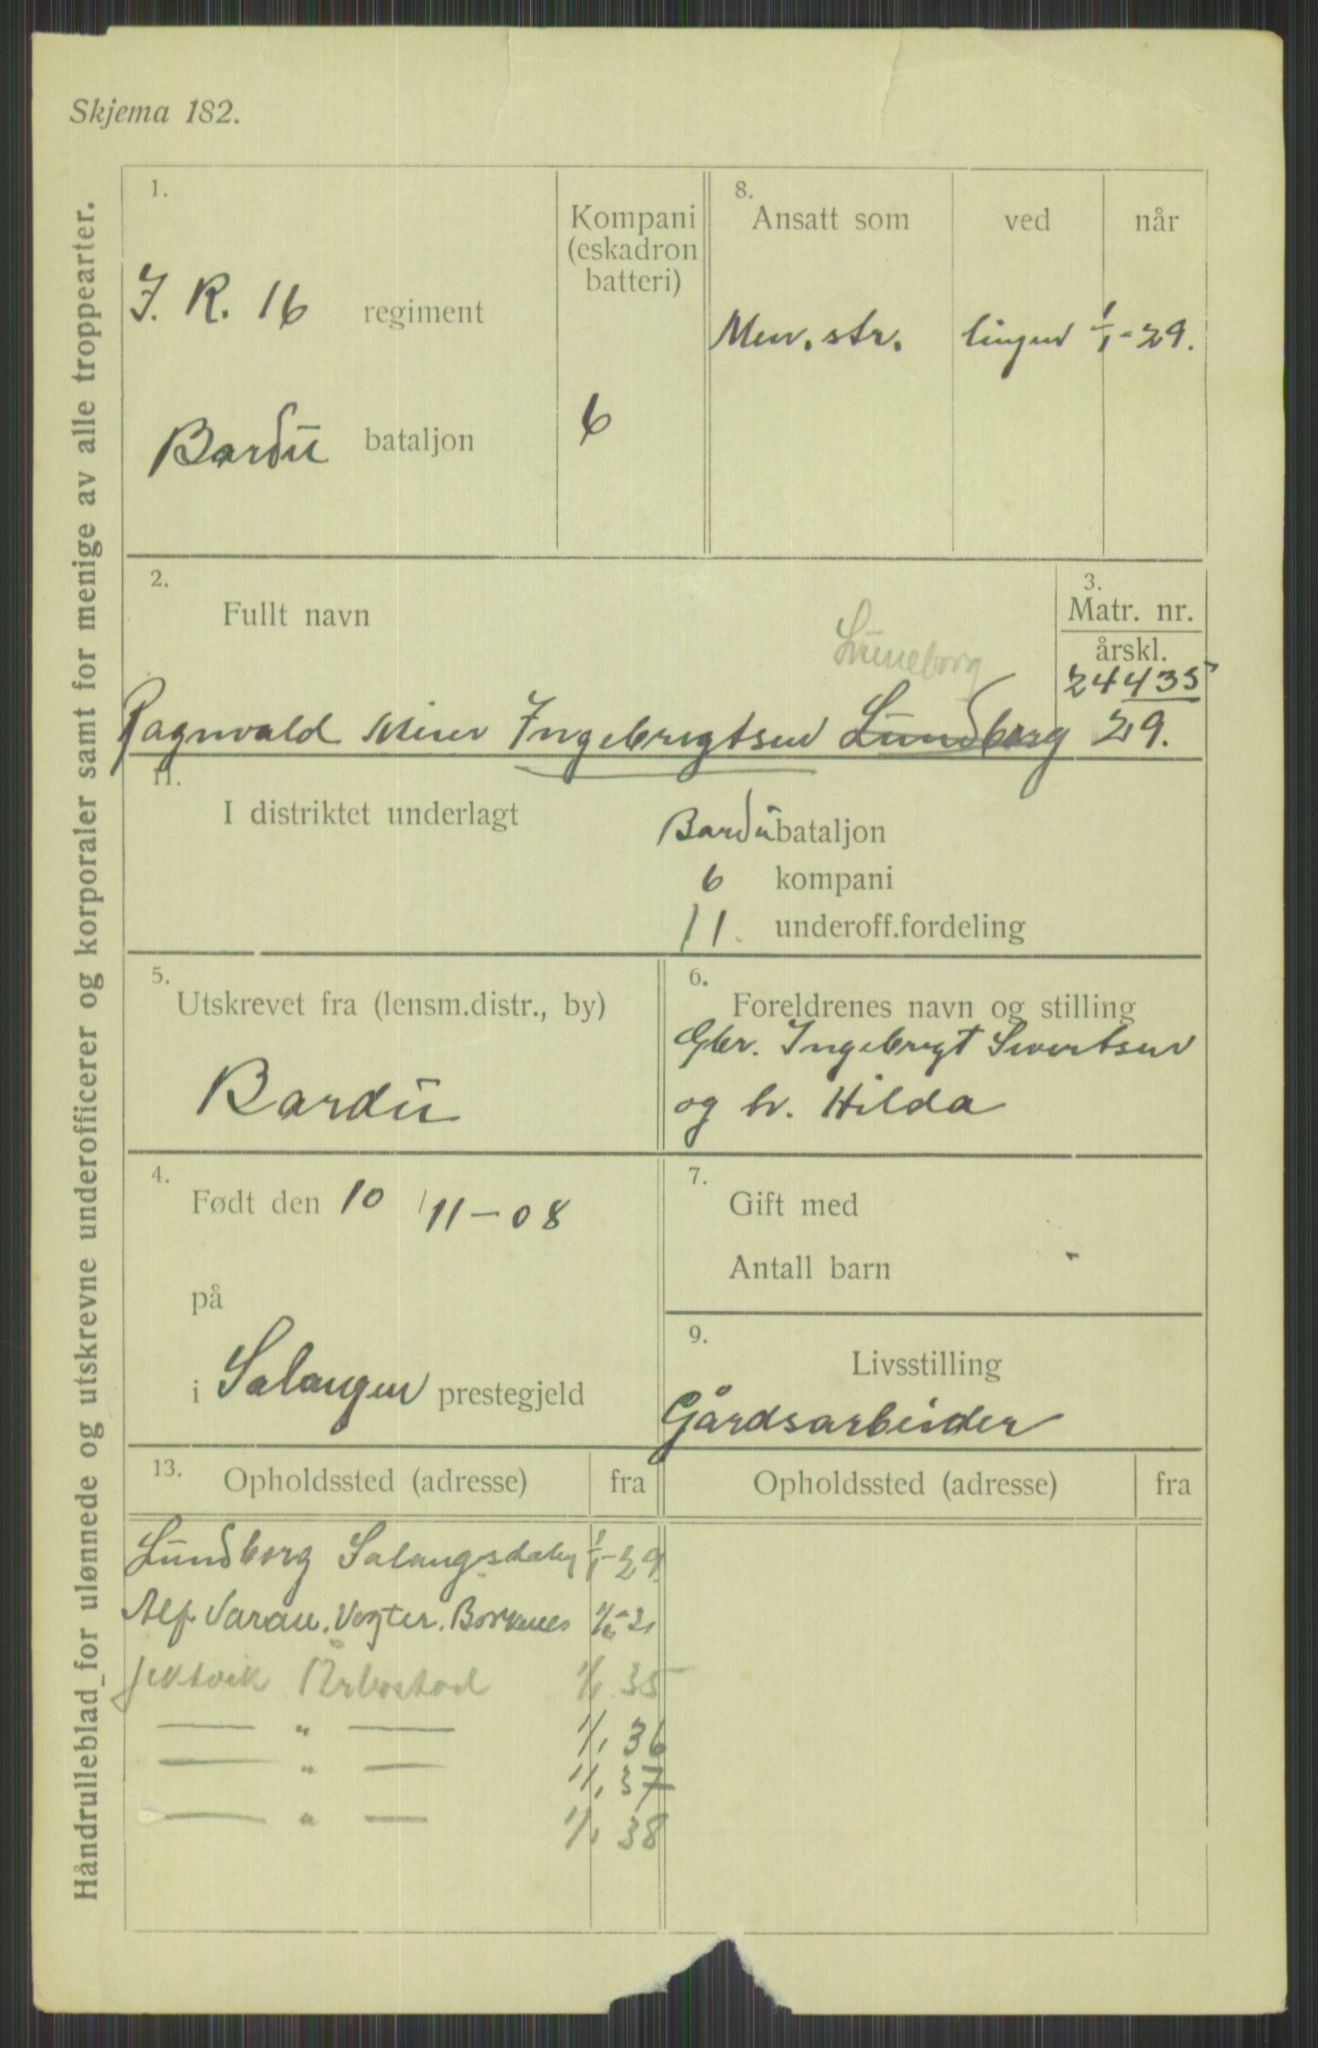 Skjema 182.
Håndrulleblad for ulønnede og utskrevne underofficerer og korporaler samt for menige av alle troppearter.
1.
Kompani
(eskadron
batteri)
8.
Ansatt som
ved
når
I. R. 16 regiment
Men. str.
linjen
1/1-29.
Bardū bataljon
6
2.
Fullt navn
3.
Matr. nr.
årskl.
24435
29.
Luneborg
Ragnvald Ingebrigtsen Lūndborg
11.
I distriktet underlagt
Bardū bataljon
6 kompani
11. underoff.fordeling
5.
Utskrevet fra (lensm.distr., by)
Bardū
6.
Foreldrenes navn og stilling
Gbr. Ingebrigt Sivertsen
og h. Hilda
4.
Født den 10/11-08
på
i Salangen prestegjeld
7.
Gift med
Antall barn -
9.
Livsstilling
Gårdsarbeider
13.
Opholdssted (adresse)
fra
Opholdssted (adresse)
fra
Lūndborg Salangsdalen 1/1-29
Alf Borkenes
Jektvik Årbostad 35
— " — 1/1 36
— " — 1/1 37
— " — 1/1 38